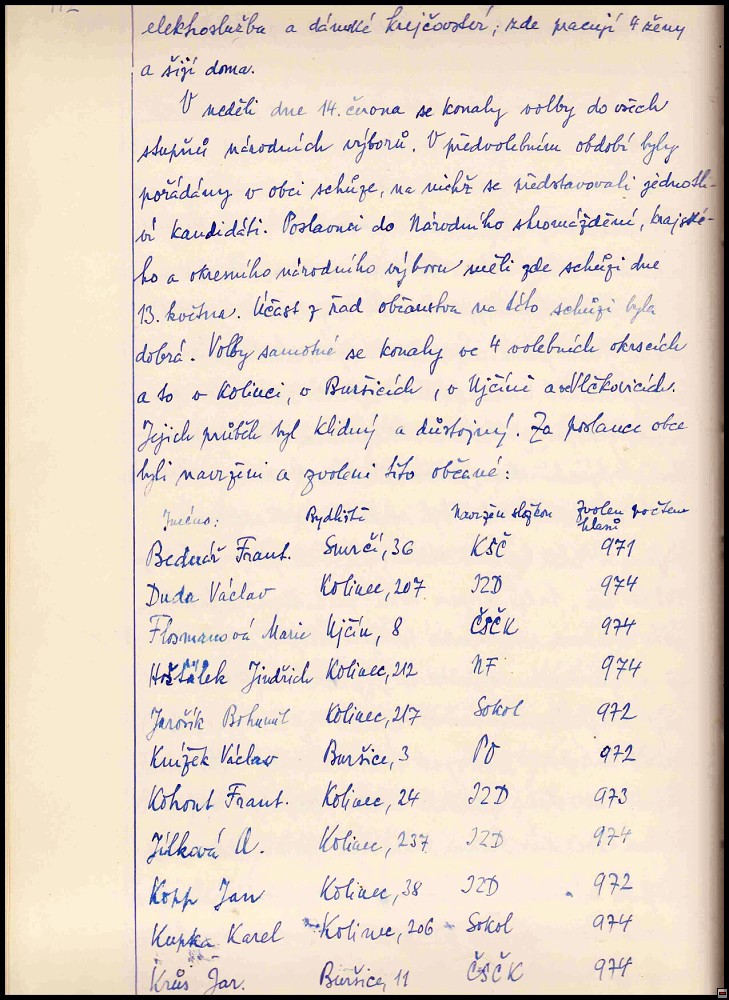 elektroslužba a dámské krejčovství; zde pracují 4 ženy
a šijí doma.
V neděli dne 14. června se konaly volby do všech
stupňů národních výborů. V předvolebním období byly
pořádány v obci schůze, na nichž se představovali jednotli-
ví kandidáti. Poslanci do Národního shromáždění, krajské-
ho a okresního národního výboru měli zde schůzi dne
13. května. Účast z řad občanstva na této schůzi byla
dobrá. Volby samotné se konaly ve 4 volebních okrscích
a to v Kolinci, v Buršicích, v Ujčíně a ve Vlčkovicích.
Jejich průběh byl klidný a důstojný. Za poslance obce
byli navrženi a zvoleni tito občané:
Jméno: Bydliště Navržen složkou Zvolen počtem hlasů
Bednář Frant. Smrčí, 36 KSČ 971
Duda Václav Kolinec, 207 JZD 974
Flosmanová Marie Ujčín, 8 ČSČK 974
Hošťálek Jindřich Kolinec, 212 NF 974
Jarošík Bohumil Kolinec, 217 Sokol 972
Knížek Václav Buršice, 3 PO 972
Kohout Frant. Kolinec, 24 JZD 973
Jílková A. Kolinec, 237 JZD 974
Kopp Jan Kolinec, 38 JZD 972
Kupka Karel Kolinec, 206 Sokol 974
Krůs Jar. Buršice, 11 ČSČK 974